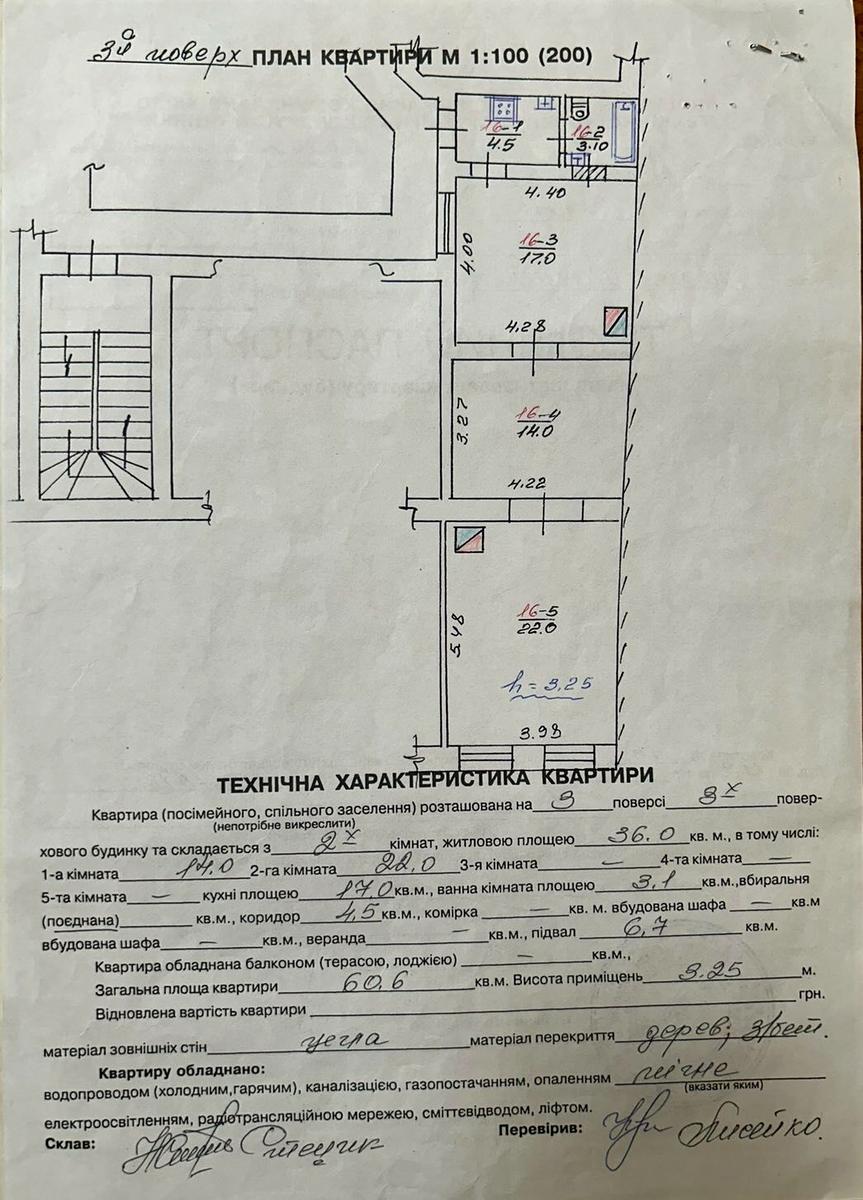 3й поверх ПЛАН КВАРТИРИ М 1:100 (200)
16-1
4.5
16-2
3.10
4.40
4.00
16-3
17.0
4.28
3.27
16-4
14.0
4.22
16-5
22.0
5.48
h = 3.25
3.98
ТЕХНІЧНА ХАРАКТЕРИСТИКА КВАРТИРИ
Квартира (посімейного, спільного заселення) розташована на 3 поверсі 3х повер-
(непотрібне викреслити)
хового будинку та складається з 2х кімнат, житловою площею 36.0 кв. м., в тому числі:
1-а кімната 14.0 2-га кімната 22.0 3-я кімната — 4-та кімната —
5-та кімната — кухні площею 17.0 кв.м., ванна кімната площею 3.1 кв.м.,вбиральня
(поєднана) кв.м., коридор 4,5 кв.м., комірка — кв. м. вбудована шафа — кв.м
вбудована шафа — кв.м., веранда — кв.м., підвал 6,7 кв.м.
Квартира обладнана балконом (терасою, лоджією) — кв.м.,
Загальна площа квартири 60.6 кв.м. Висота приміщень 3.25 м.
Відновлена вартість квартири грн.
матеріал зовнішніх стін цегла матеріал перекриття дерев; з/бет.
Квартиру обладнано:
водопроводом (холодним,гарячим), каналізацією, газопостачанням, опаленням пічне
(вказати яким)
електроосвітленням, радіотрансляційною мережею, сміттєвідводом, ліфтом.
Склав: Перевірив: